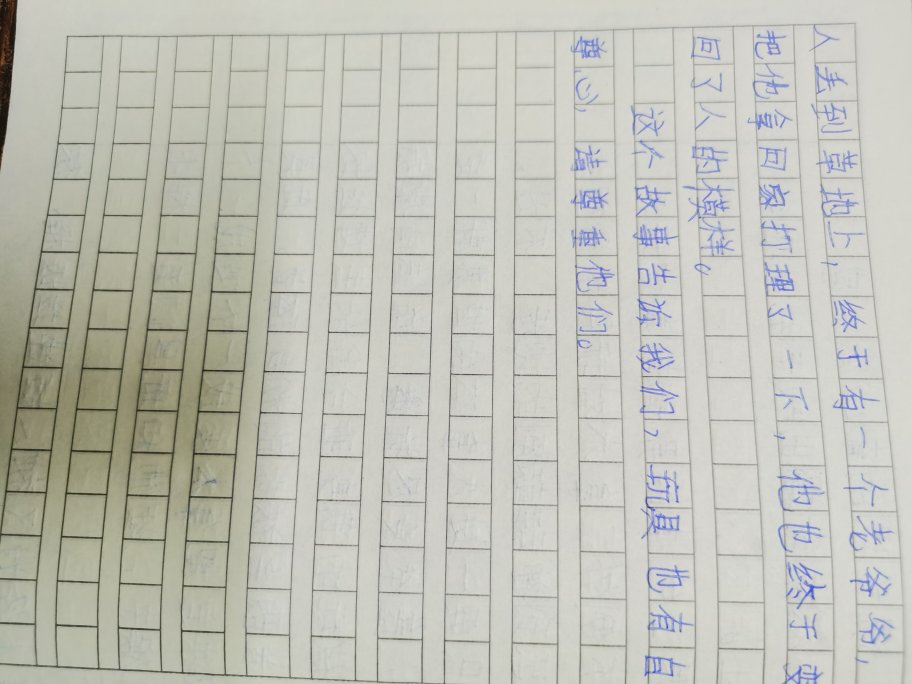 人丢到草地上,终于有一个老爷爷,
把他拿回家打理了一下,他也终于变
回了人的模样。
这个故事告诉我们,玩具也有自
尊心,请尊重他们。